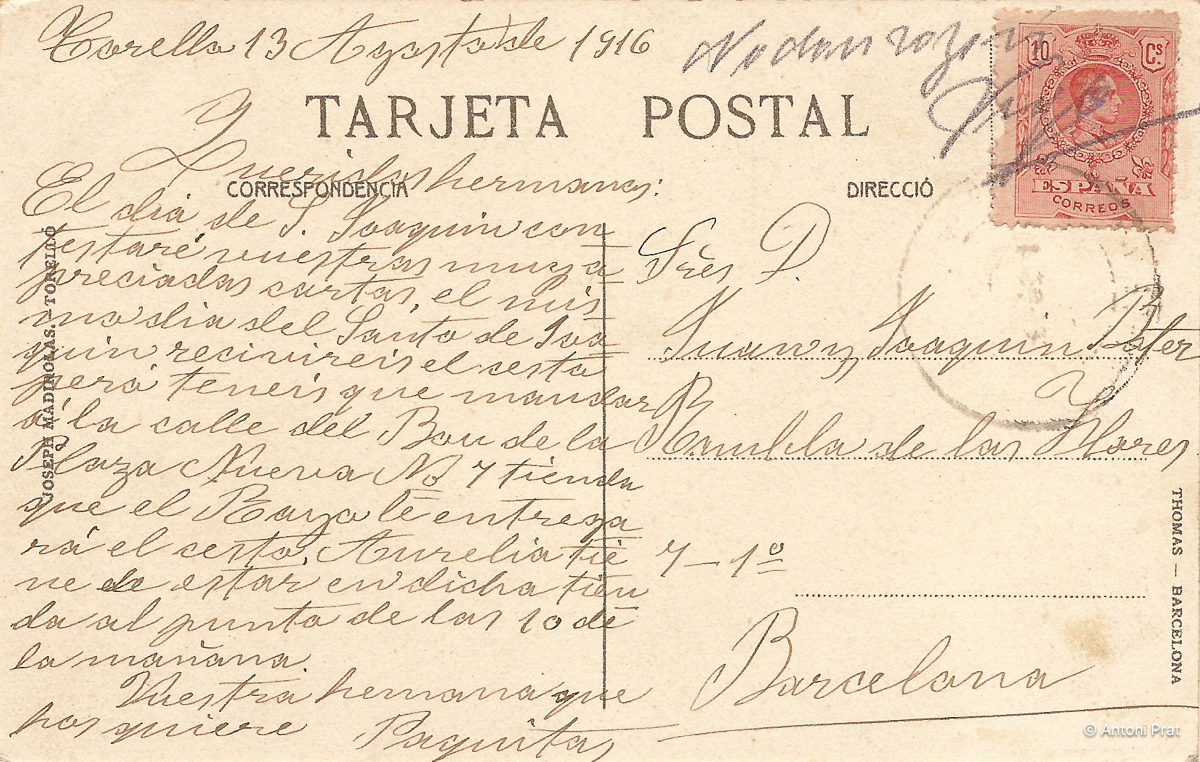 Torello 13 Agosto de 1916
No dan razón
TARJETA POSTAL
CORRESPONDENCIA
DIRECCIÓ
10 Cs
ESPAÑA
CORREOS
Queridos hermanos:
El dia de S. Joaquin con
testaré vuestras muy a
preciadas cartas, el mis
mo dia del Santo de Joa
quin recivireis el cesto
pero teneis que mandar
á la calle del Bou de la
Plaza Nueva No 7 tienda
que el Rayo le entrega
rá el cesto. Aurelia tie
ne de estar en dicha tien
da al punto de las 10 de
la mañana.
Vuestra hemana que
hos quiere Paquita
Srès D.
Juan y Joaquin
Rambla de las Flores
7 - 1º
Barcelona
JOSEPH MADIROLAS. - TORELLÓ
THOMAS — BARCELONA
© Antoni Prat